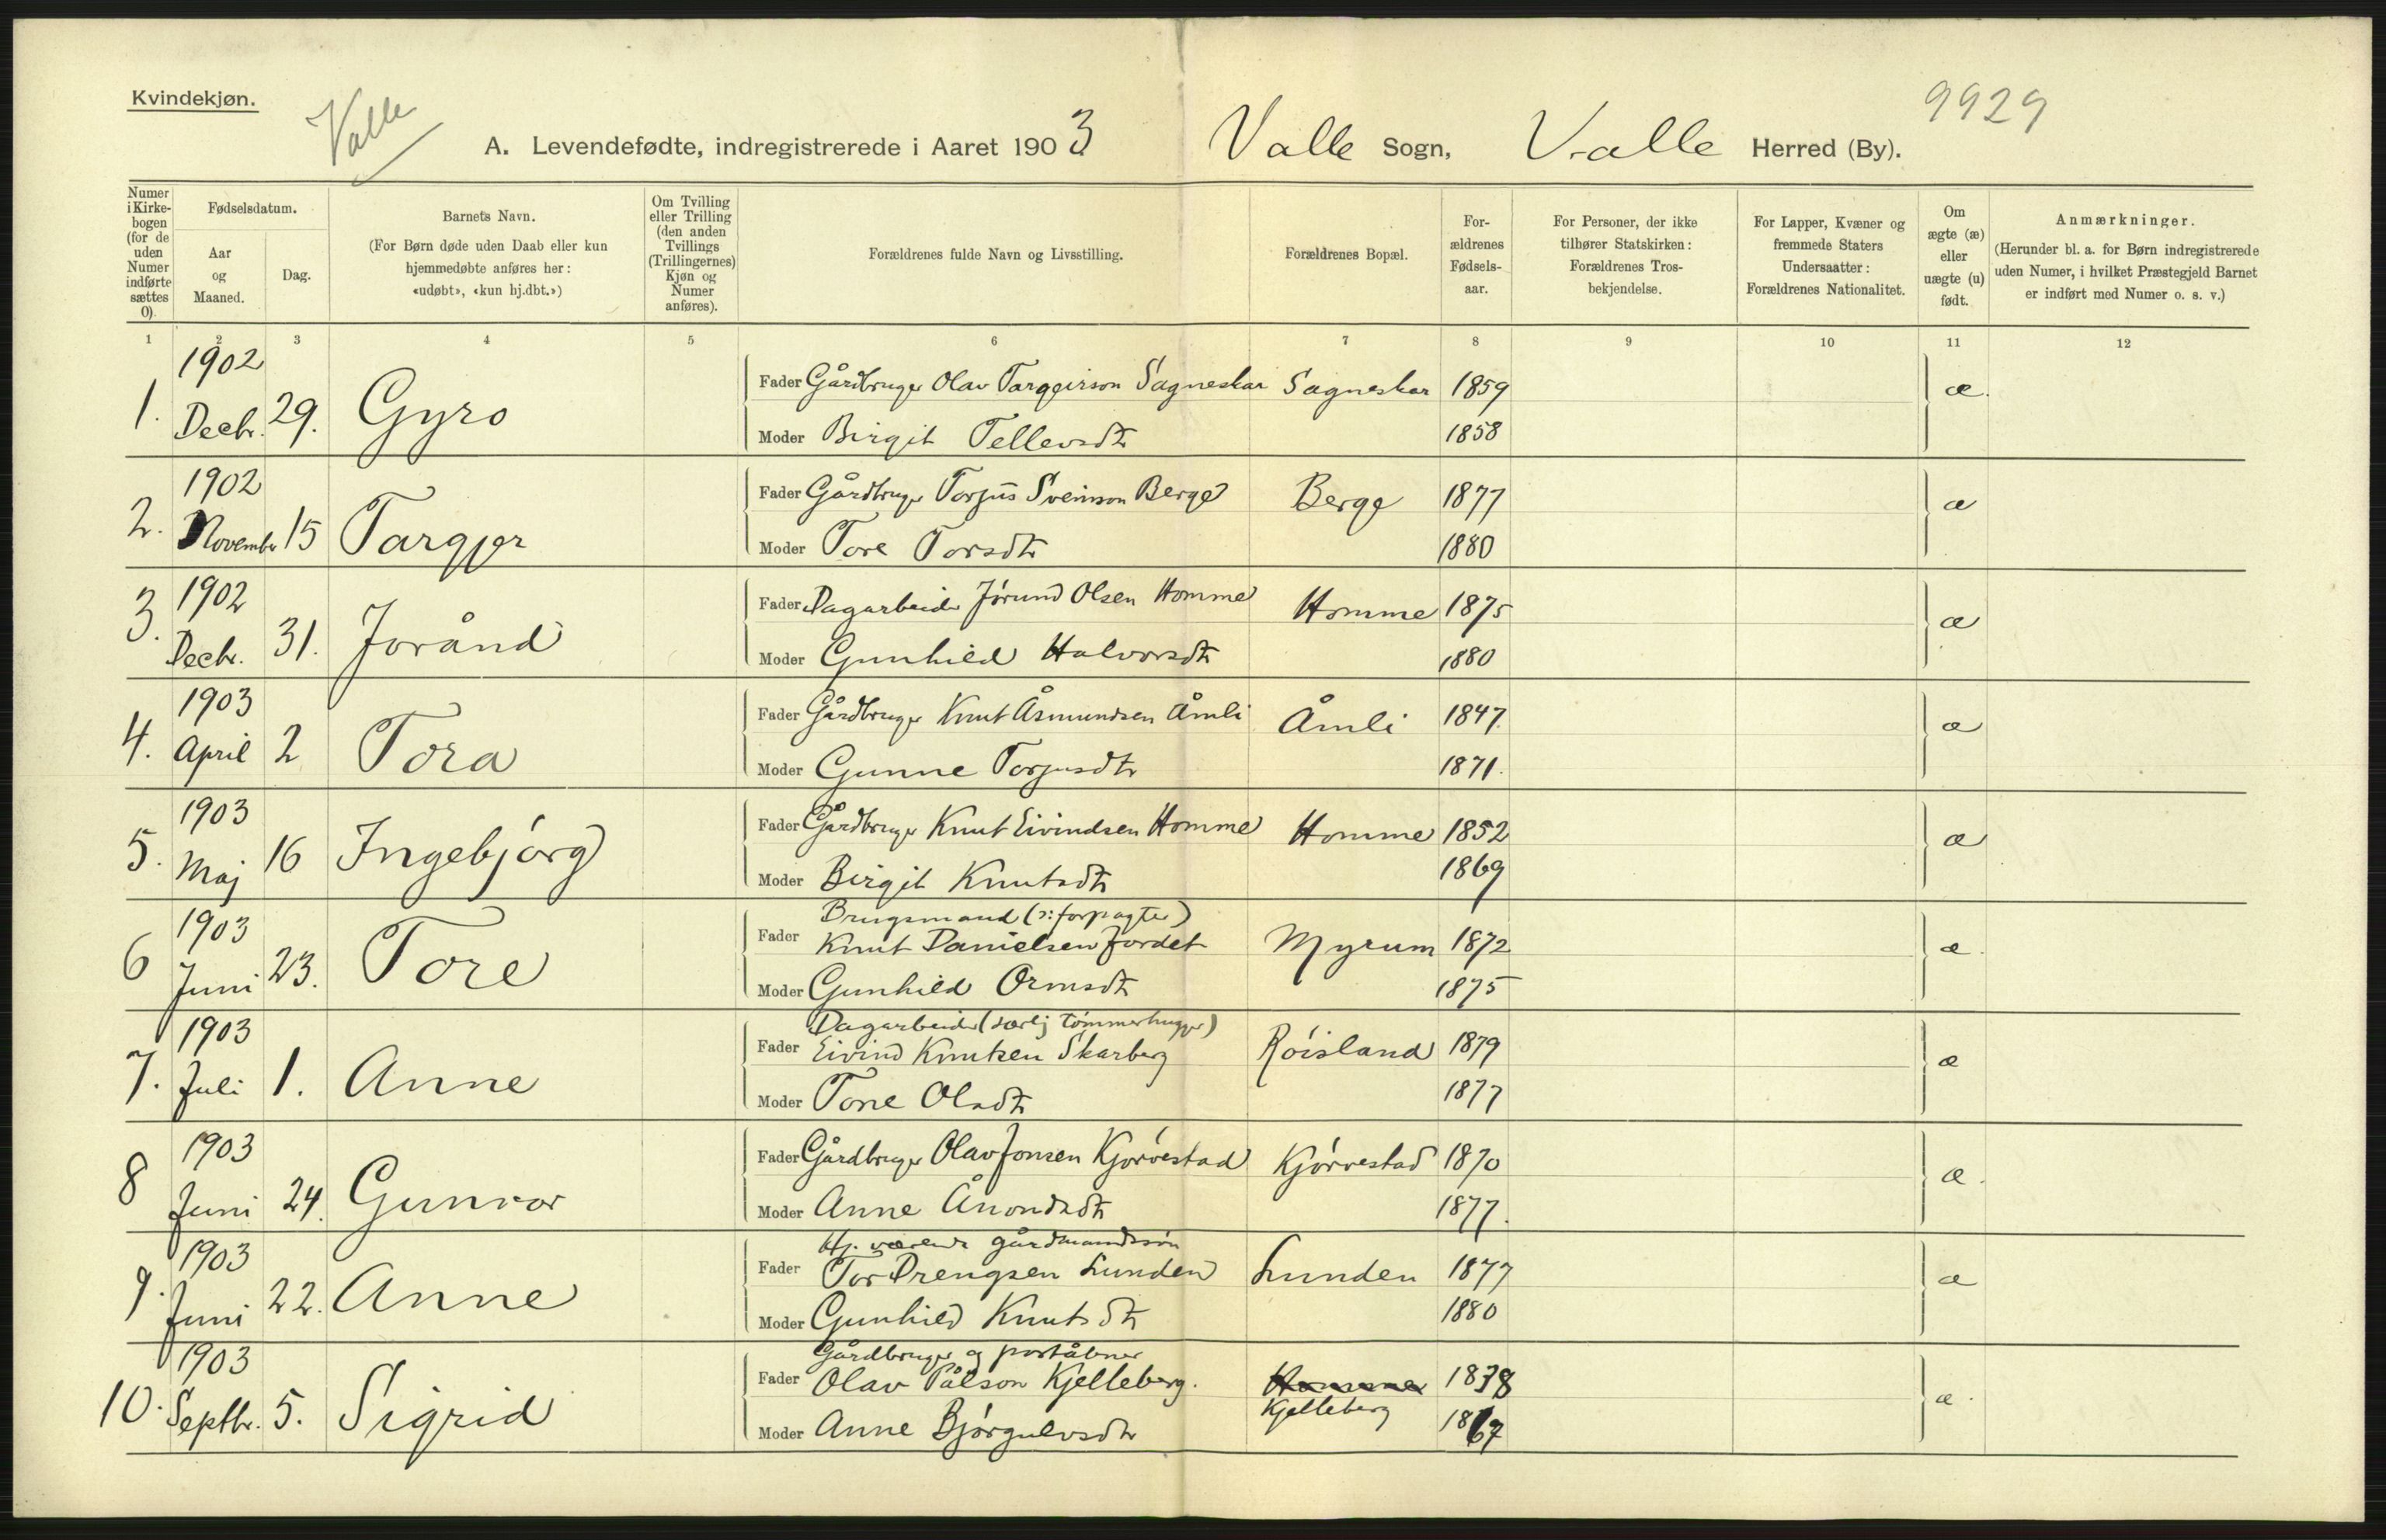 Kvindekjøn.
Valle
9929
A. Levendefødte, indregistrerede i Aaret 1903 Valle Sogn, Valle Herred (By).
Numer i Kirkebogen (for de uden Numer indførte sættes 0).
Fødselsdatum.
Aar og Maaned.
Dag.
Barnets Navn.
(For Børn døde uden Daab eller kun hjemmedøbte anføres her: «udøbt», «kun hj.dbt.»)
Om Tvilling eller Trilling (den anden Tvillings (Trillingernes) Kjøn og Numer anføres).
Forældrenes fulde Navn og Livsstilling.
Forældrenes Bopæl.
Forældrenes Fødselsaar.
For Personer, der ikke tilhører Statskirken: Forældrenes Trosbekjendelse.
For Lapper, Kvæner og fremmede Staters Undersaatter: Forældrenes Nationalitet.
Om ægte (æ) eller uægte (u) født.
Anmærkninger.
(Herunder bl. a. for Børn indregistrerede uden Numer, i hvilket Præstegjeld Barnet er indført med Numer o. s. v.)
1 2 3 4 5 6 7 8 9 10 11 12
1. 1902 Decbr. 29. Gyro
Fader Gårdbruger Olav Targeirson Sagneskar Sagneskar 1859 æ.
Moder Birgit Tellevsdtr 1858
2. 1902 November 15 Targjer
Fader Gårdbruger Torjus Sveinson Berge Berge 1877 æ
Moder Tore Torsdtr 1880
3. 1902 Decbr. 31. Jorånd
Fader Dagarbeider Jørund Olsen Homme Homme 1875 æ
Moder Gunhild Halvorsdtr 1880
4. 1903 April 2 Tora
Fader Gårdbruger Knut Åsmundsen Åmli Åmli 1847. æ
Moder Gunne Torjusdtr 1871.
5. 1903 Maj 16 Ingebjórg
Fader Gårdbruger Knut Eivindsen Homme Homme 1852 æ
Moder Birgit Knutsdtr 1869
6 1903 Juni 23. Tore
Brugsmand (ɔ: forpagter)
Fader Knut Danielsen Jordet Myrum 1872 æ.
Moder Gunhild Ormsdtr 1875
7. 1903 Juli 1. Anne
Dagarbeider (særlj tømmerhugger)
Fader Eivind Knutsen Skarberg Róisland 1879 æ
Moder Tone Olsdtr 1877
8 1903 Juni 24. Gunvor
Fader Gårdbruger Olav Jonsen Kjørvestad Kjørvestad 1870 æ.
Moder Anne Ånondsdtr 1877.
9. 1903 Juni 22. Anne
Hj. værende gårdmandssøn
Fader Tor Drengsen Lunden Lunden 1877 æ
Moder Gunhild Knutsdtr 1880
10. 1903 Septbr. 5. Sigrid
Gårdbruger og poståbner
Fader Olav Pålson Kjelleberg. Homme 1838 æ.
Kjelleberg
Moder Anne Bjørgulvsdtr 1867